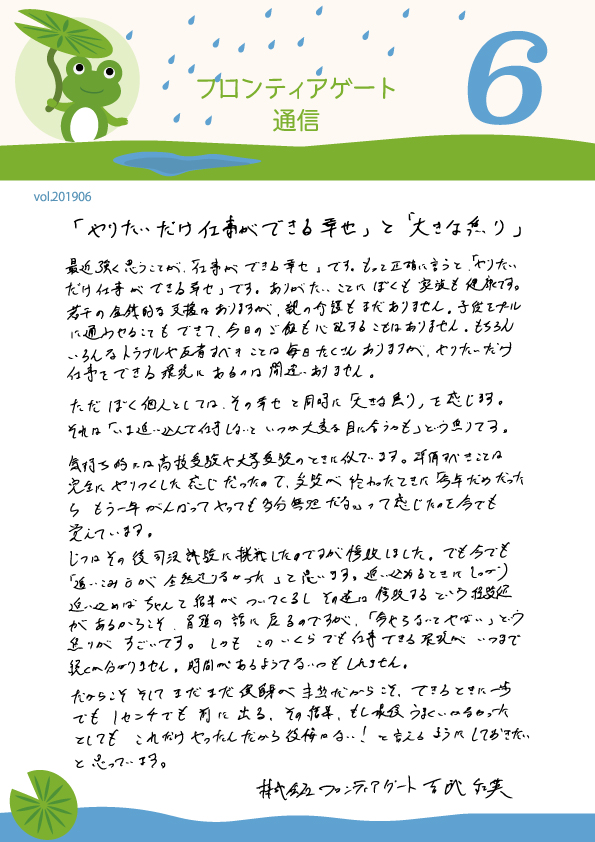 フロンティアゲート
通信
6
vol.201906
「やりたいだけ仕事ができる幸せ」と「大きな焦り」
最近強く思うことが、「仕事ができる幸せ」です。もっと正確に言うと、「やりたい
だけ仕事ができる幸せ」です。ありがたいことにぼくも家族も健康です。
若干の金銭的な支援はありますが、親の介護もまだありません。子供をプール
に通わせることもできて、今日のご飯も心配することはありません。もちろん
いろんなトラブルや反省すべきことは毎日たくさんありますが、やりたいだけ
仕事をできる環境にあるのは間違いありません。
ただぼく個人としては、その幸せと同時に「大きな焦り」を感じます。
それは「いま追い込んで仕事しないといつか大変な目に合うかも」という焦りです。
気持ち的には高校受験や大学受験のときに似ています。準備すべきことは
完全にやりつくした感じだったので、受験が終わったときに「今年だめだった
らもう一年がんばってやっても多分無理だな」って感じたのを今でも
覚えています。
じつはその後司法試験に挑戦したのですが惨敗しました。でも今でも
「追いこみが全然足りなかった」と思います。追い込めるときにしっかり
追い込めばちゃんと結果がついてくるしその逆は惨敗するという経験
があるからこそ、冒頭の話に戻るのですが、「今やらないとやばい」という
焦りがすごいです。しかもこのいくらでも仕事できる環境がいつまで
続くか分かりません。時間があるようでないかもしれません。
だからこそそしてまだまだ経験が未熟だからこそ、できるときに一歩
でも1センチでも前に出る、その結果、もし最後うまくいかなかった
としてもこれだけやったんだから後悔はない！と言えるようにしておきたい
と思っています。
株式会社フロンティアゲート